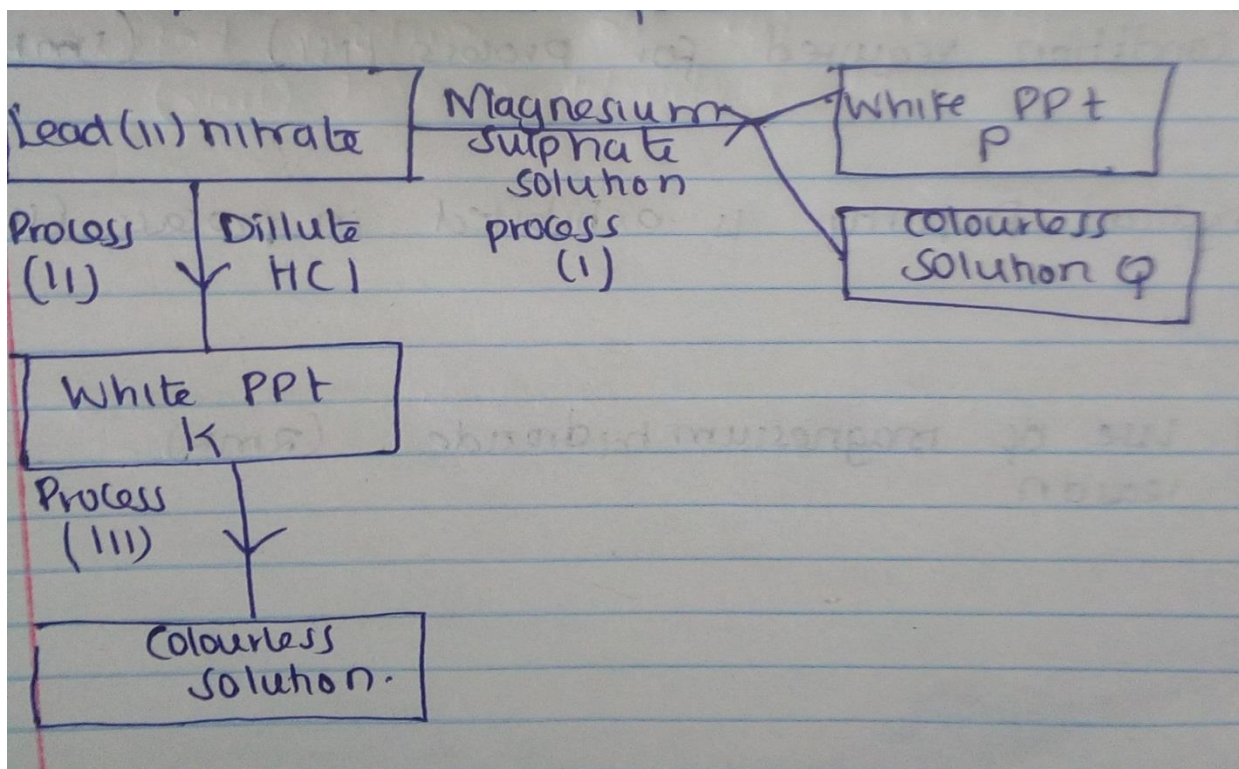 Lead (11) nitrate
Magnesium
sulphate
solution
process
(1)
White PPt
P
colourless
solution Q
Process
(11)
Dillute
HCl
White PPt
K
Process
(111)
Colourless
solution.